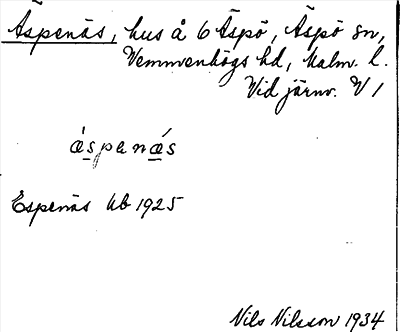 Äspenäs, hus å 6 Äspö, Äspö sn,
Vemmenhögs hd, Malm. l.
Vid järnv. V 1
ä́spenä́s
Espenäs Ub 1925
Nils Nilsson 1934